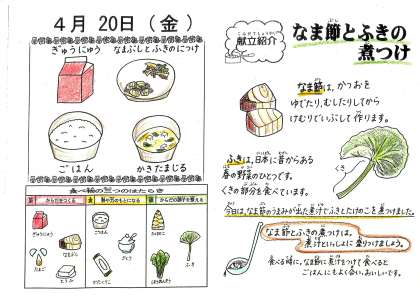 4月 20日（金）
ぎゅうにゅう
なまぶしとふきのにつけ
ごはん
かきたまじる
食べ物の三つのはたらき
からだをつくる
熱や力のもとになる
からだの調子を整える
ぎゅうにゅう
ごはん
たまご
とうふ
かたくりこ
献立紹介
なま節とふきの
煮つけ
なま節は、かつおを
ゆでたり、むしたりしてから
けむりでいぶして作ります。
ふきは、日本に昔からある
春の野菜のひとつです。
くきの部分を食べています。
くき
今日は、なま節のうまみが出た煮汁でふきとたけのこを煮ました。
なま節とふきの煮つけは、
煮汁といっしょに盛りつけましょう。
食べる時に、なま節に煮汁をつけて食べると
ごはんにもよく合い、おいしいです。